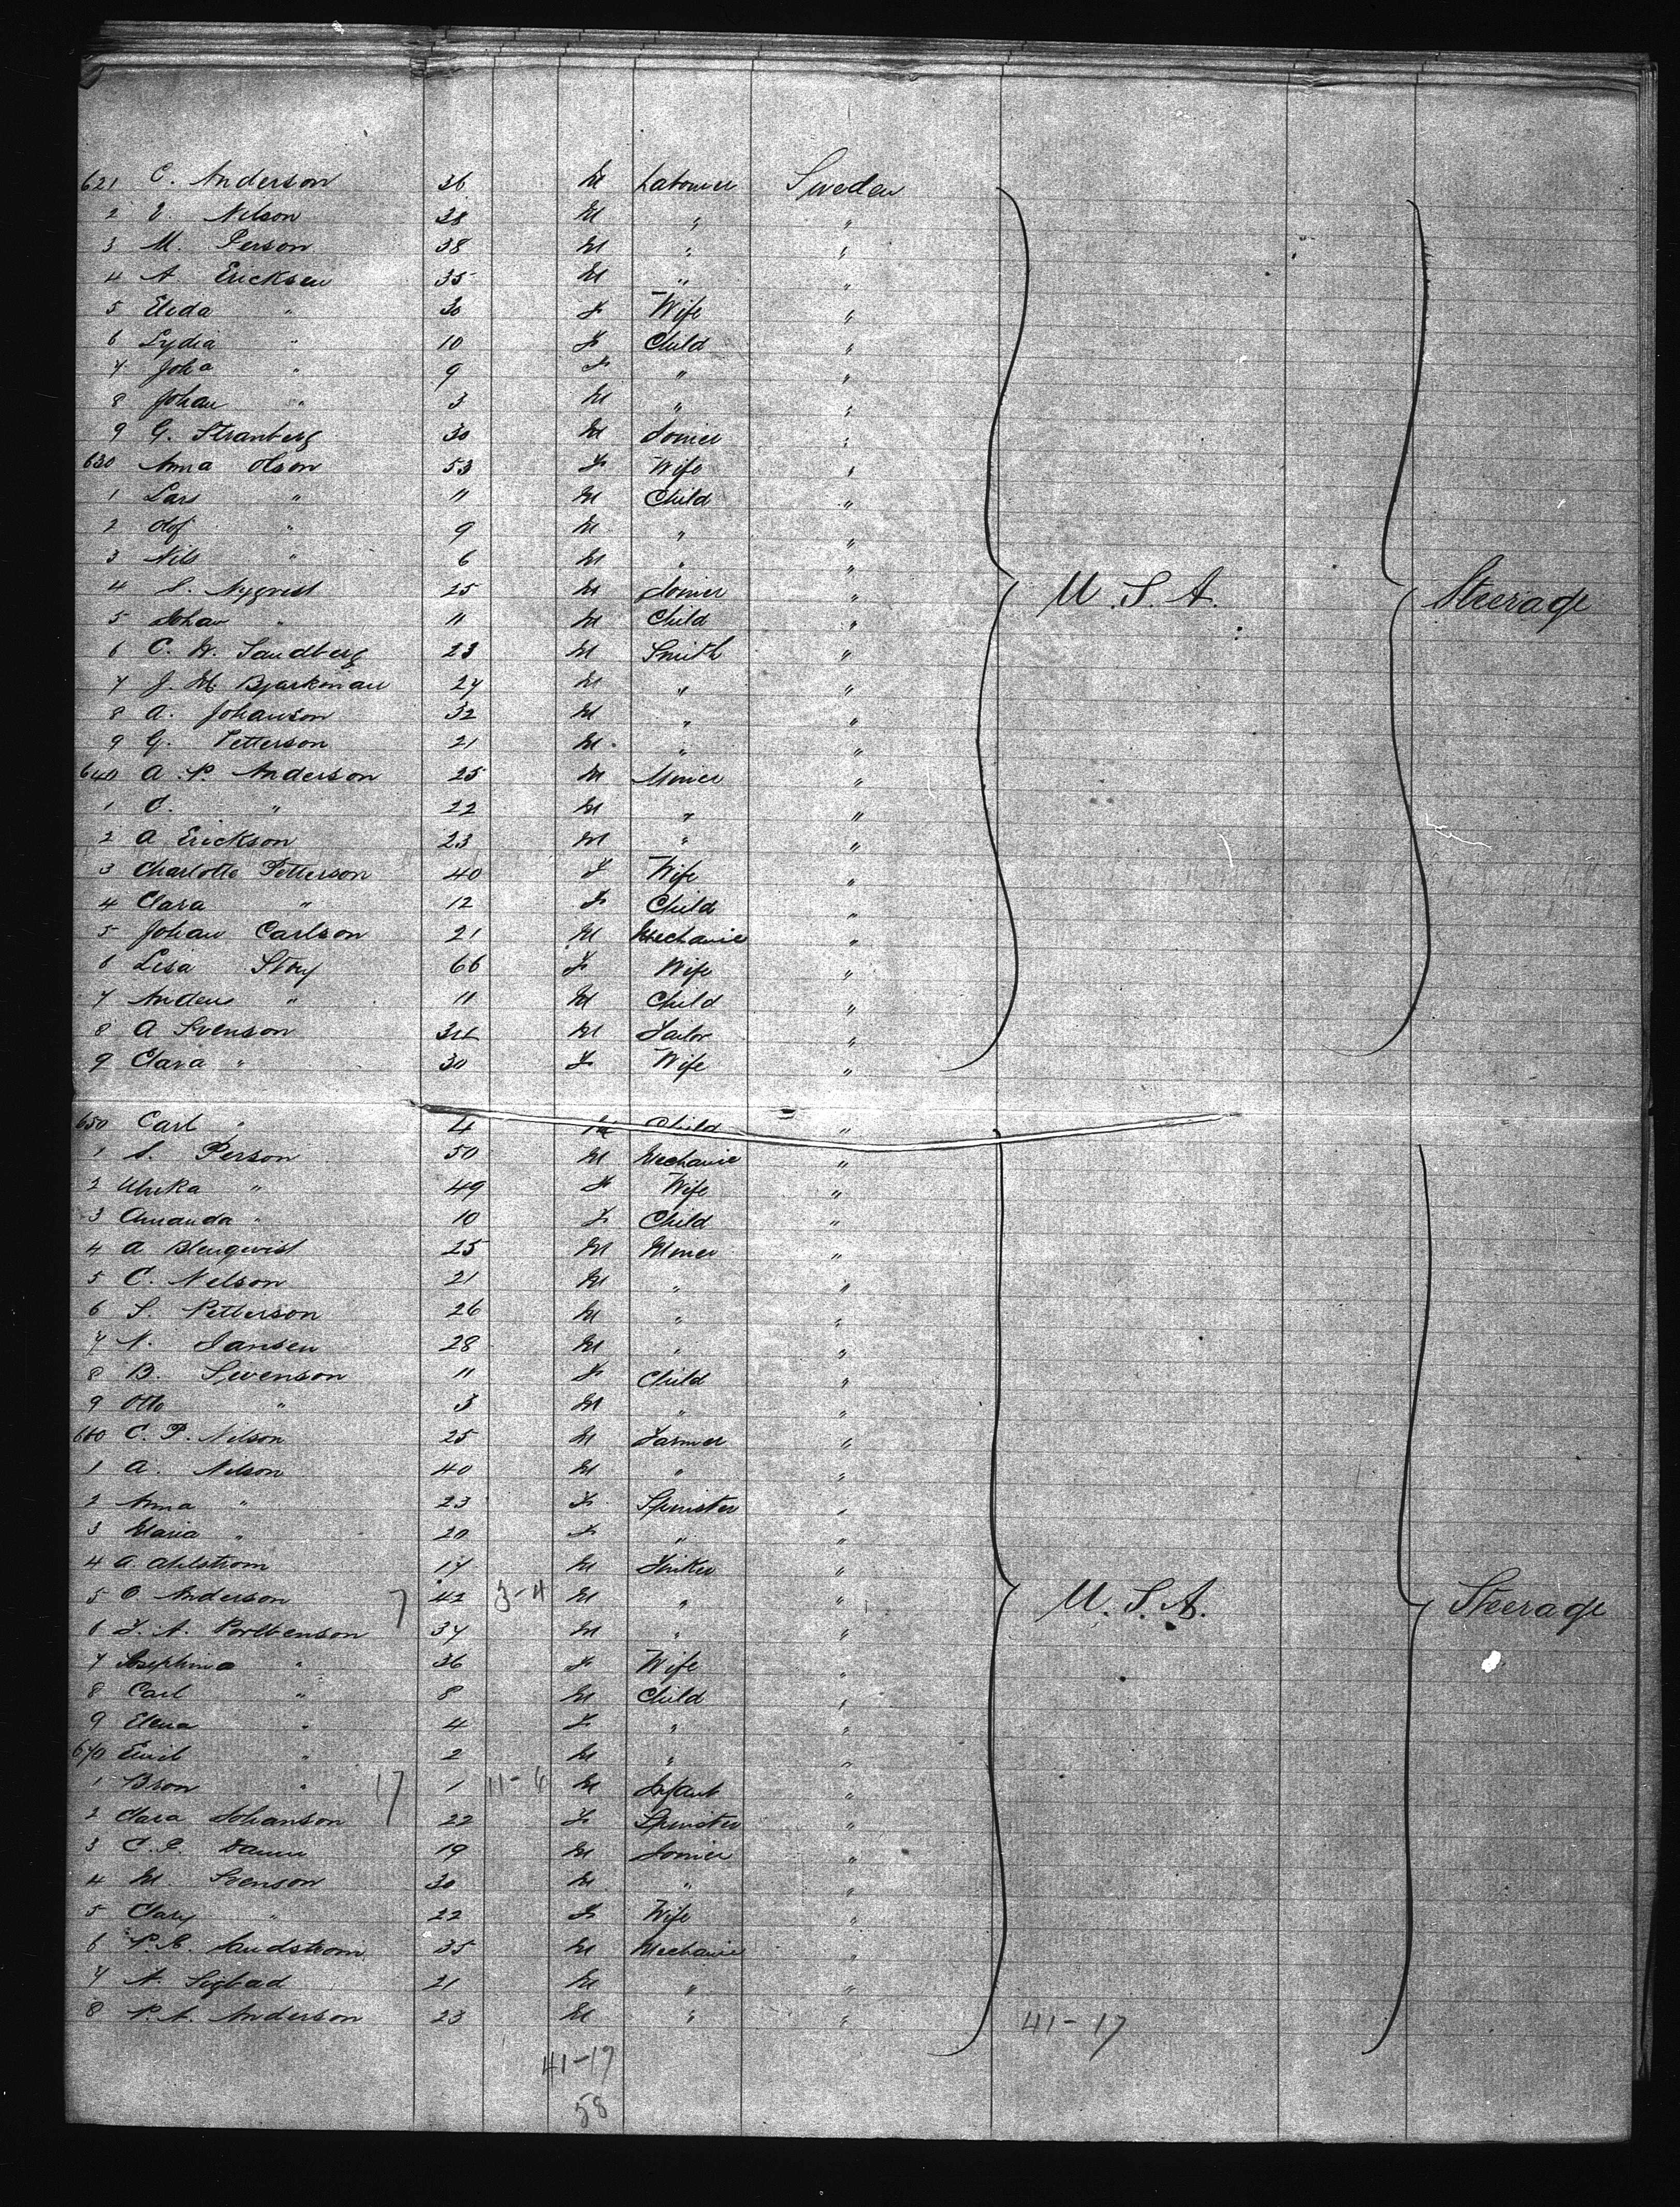 621 C. Anderson 36 M Labourer Sweden
2 E. Nilson 38 M " "
3 M. Person 38 M " "
4 A. Ericksen 35 M " "
5 Elida " 30 F Wife "
6 Lydia " 10 F Child "
7 Joha " 9 F " "
8 Johan " 3 M " "
9 G. Stranberg 30 M Joiner "
630 Anna Olson 53 F Wife "
1 Lars " 11 M Child "
2 Olof " 9 M " "
3 Nils " 6 M " "
4 S. Nyqvist 25 M Joiner " U.S.A. Steerage
5 Johan " 11 M Child "
6 C. W. Sandberg 23 M Smith "
7 J. M. Bjarkman 27 M " "
8 A. Johanson 32 M " "
9 G. Petterson 21 M " "
640 A. P. Anderson 25 M Miner "
1 C. " 22 M " "
2 A Erickson 23 M " "
3 Charlotte Petterson 40 F Wife "
4 Clara " 12 F Child "
5 Johan Carlson 21 M Mechanic "
6 Lisa Story 66 F Wife "
7 Anders " 11 M Child "
8 A Svenson 34 M Tailor "
9 Clara " 30 F Wife "
650 Carl " 4 M Child "
1 S. Person 50 M Mechanic "
2 Ulrika " 49 F Wife "
3 Amanda " 10 F Child "
4 A Blenqvist 25 M Miner "
5 C. Nelson 21 M " "
6 S. Petterson 26 M " "
7 N. Jansen 28 M " "
8 B. Svenson 11 F Child "
9 Otto " 3 M " "
660 C. P. Nilson 25 M Farmer "
1 A. Nelson 40 M " "
2 Anna " 23 F Spinster "
3 Maria " 20 F " "
4 A. Ahlstrom 17 M Tinker "
5 O Anderson 7 42 3-4 M " " U.S.A. Steerage
6 F. A. 37 M " "
7 Josephina " 36 F Wife "
8 Carl " 8 M Child "
9 Elena " 4 F " "
670 Emil " 2 M " "
1 Bron " 17 1 11-6 M Infant "
2 Clara Johanson 22 F Spinster "
3 C. P. 19 M Joiner "
4 M. Svenson 30 M " "
5 Clary " 22 F Wife "
6 P. E. Sandstrom 35 M Mechanic "
7 A. 21 M " "
8 P. A. Anderson 23 M " " 41-17
41-17
58